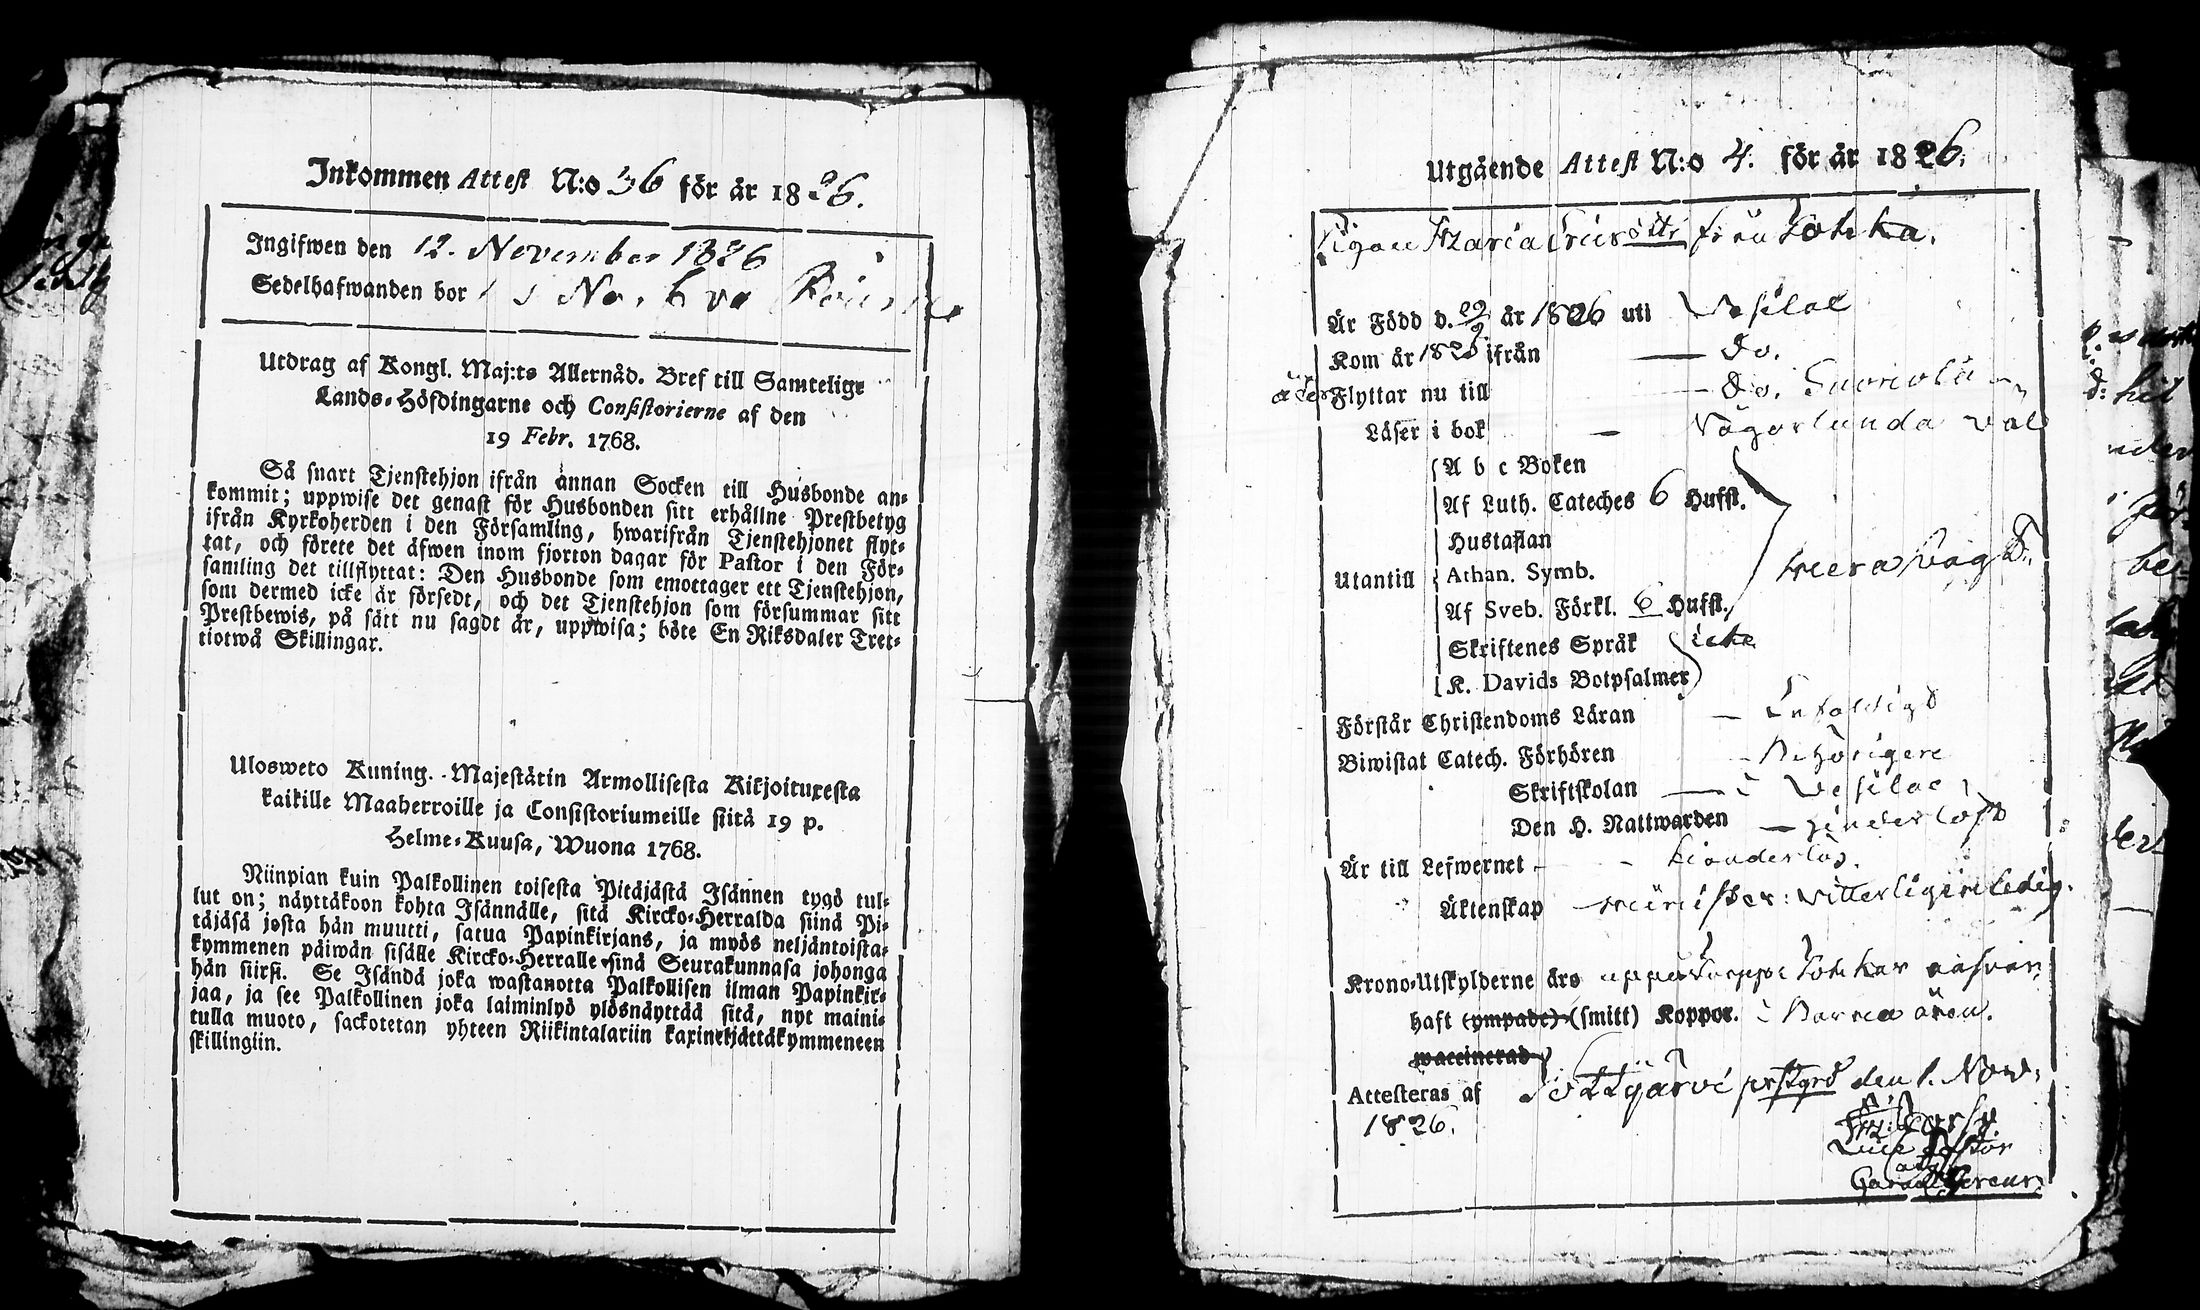 Inkommen Attest N:o 36 för år 1826.
Ingifwen den 12. November 1826
Sedelhafwanden bor
Utdrag af Kongl. Maj:ts Allernåd. Bref till Samtelige
Lands-Höfdingarne och Consistorierne af den
19 Febr. 1768.
Så snart Tjenstehjon ifrån annan Socken till Husbonde an-
kommit; uppwise det genast för Husbonden sitt erhållne Prestbetyg
ifrån Kyrkoherden i den Församling, hwarifrån Tjenstehjonet flyt-
tat, och förete det äfwen inom fjorton dagar för Pastor i den För-
samling det tillflyttat: Den Husbonde som emottager ett Tjenstehjon,
som dermed icke är försedt, och det Tjenstehjon som försummar sitt
Prestbewis, på sätt nu sagdt är, uppwisa; böte En Riksdaler Tret-
tiotwå Skillingar.
Ulosweto Kuning. Majestätin Armollisesta Kikjoituxesta
kaikille Maaherroille ja Consistoriumeille siitä 19 p.
Helme-Kuusa, Wuona 1768.
Niinpian kuin Palkollinen toisesta Pitäjästä Isännen tygö tul-
lut on; näyttäkoon kohta Isännälle, sitä Kircko-Herralda siinä Pi-
täjäsä josta hän muutti, satua Papinkirjans, ja myös neljäntoista-
kymmenen päiwän sisälle Kircko-Herralle sinä Seurakunnasa johonga
hän siirsi. Se Isändä joka wastanotta Palkollisen ilman Papinkir-
jaa, ja see Palkollinen joka laiminlyö ylösnäyttää sitä, nyt maini-
tulla muoto, sackotetan yhteen Riikintalariin kaxinekjättäkymmeneen
skillingiin.
Utgående Attest N:o 4. för år 1826.
Pigan Maria från Tohka.
Är Född d. 29/9 år 1806 uti Vesilax
Kom år 182 ifrån — Do.
åter Flyttar nu till — Do.
Läser i bok — Någorlunda väl
A b c Boken
Af Luth. Cateches 6 Hufst.
Hustaflan
Utantill Athan. Symb.
Af Sveb. Förkl. 6 Hufst.
Skriftenes Språk icke
K. Davids Botpsalmer
Förstår Christendoms Läran — Enfaldigt
Biwistat Catech. Förhören — Behörigen
Skriftskolan — i Vesilax
Den H. Nattwarden —
Är till Lefwernet —
Äktenskap — vitterligen ledig.
Krono-Utskylderne äro
haft (ympade) (smitt) Koppor. i Barna åren.
waccinerad
Attesteras af prstgrd den 1. Nov.
1826.